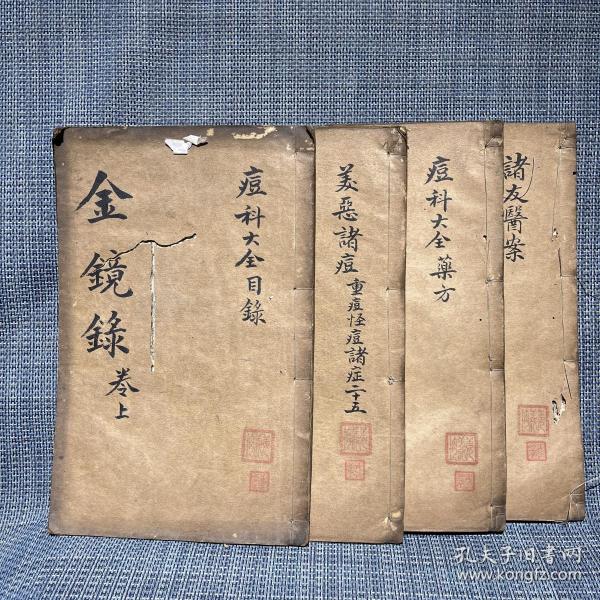 金鏡錄
卷上
痘科大全目錄
美惡諸痘
重痘怪痘諸症二十五
痘科大全藥方
諸友醫案
孔夫子旧书网
www.kongfz.com